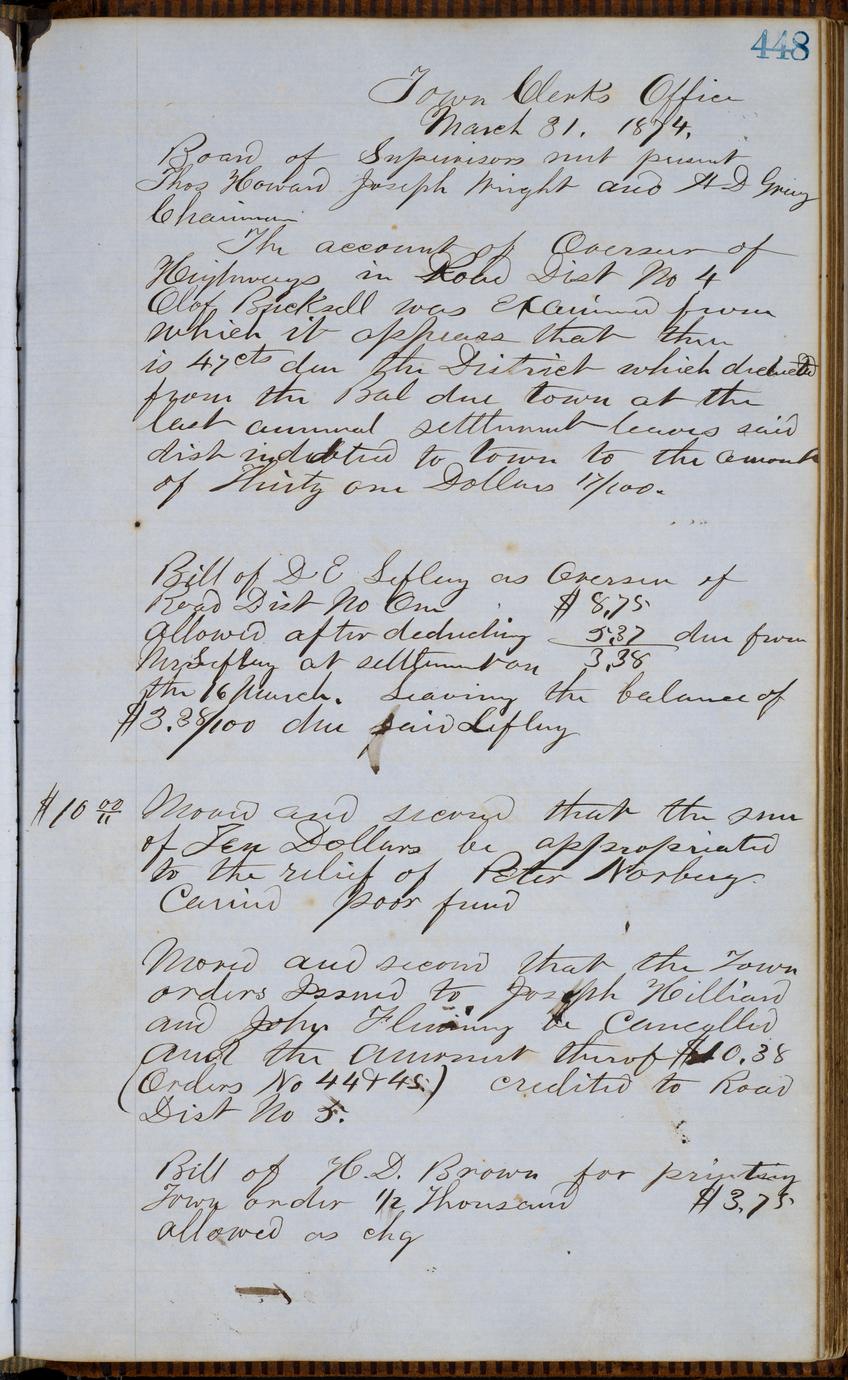 448
Town Clerks Office
March 31. 1874.
Board of Supervisors met present
Thos Howard Joseph Wright and A D Gray
Chairman
The account of Overseer of
Highways in Road Dist No 4
Olof Bucksell was Examined from
which it appears that there
is 47cts due the District which deducted
from the Bal due town at the
last annual settlement leaves said
dist indebted to town to the amount
of Thirty one Dollars 17/100.
Bill of D E Lefluy as Overseer of
Road Dist No One $8,75
allowed after deducting 5,37 due from
Mr Lefluy at settlement on 3,38
the 16 March. Leaving the balance of
$3.38/100 due said Lefluy
$10 00/11 Moved and second that the sum
of Ten Dollars be appropriated
to the relief of Peter Norberg.
Carried poor fund
Moved and second that the Town
orders Issued to Joseph Hilliard
and John Fleming be Cancelled
and the amount therof $10.38
(Orders No 44&45.) credited to Road
Dist No 5.
Bill of H.D. Brown for printing
Town order 1/2 Thousand $3.75
allowed as chg